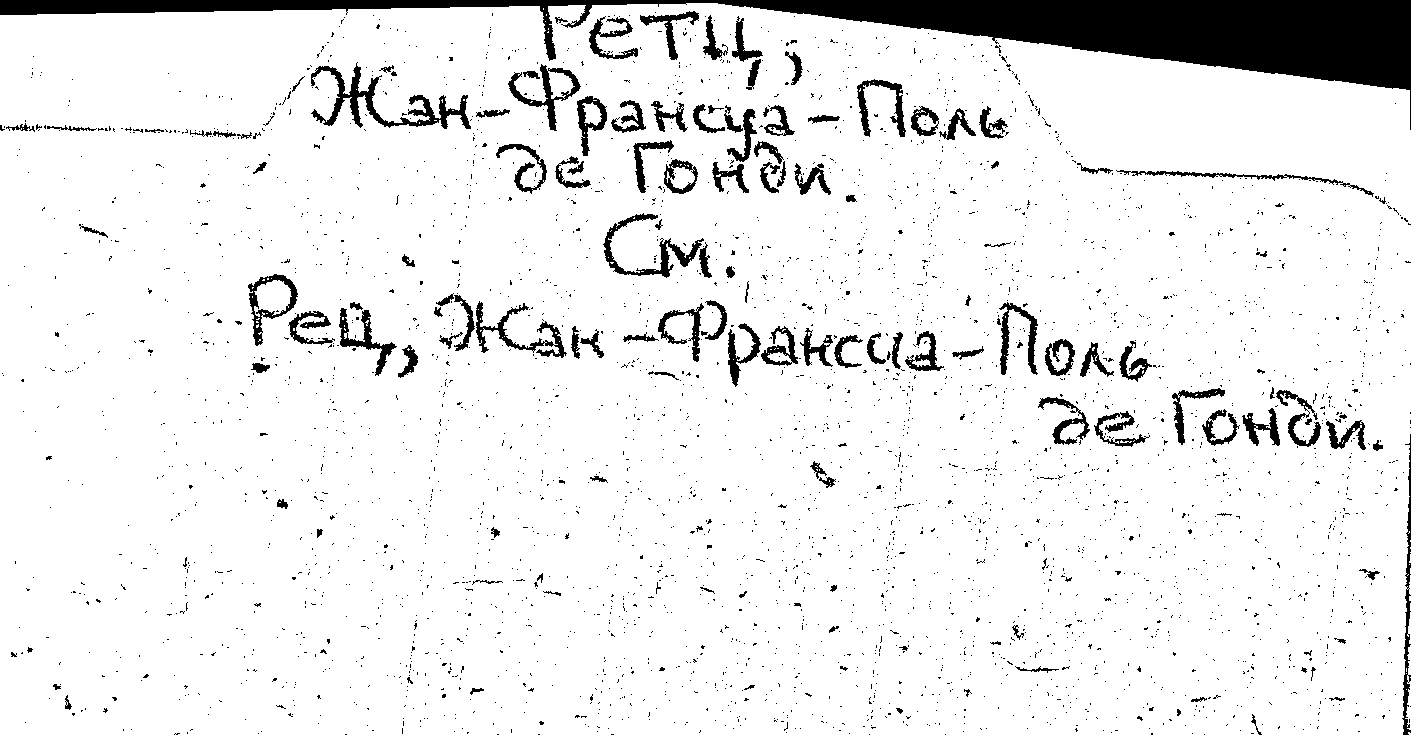 Ретц,
Жан-Франсуа-Поль
де Гонди.
См.
Рец, Жан-Франсуа-Поль
де Гонди.